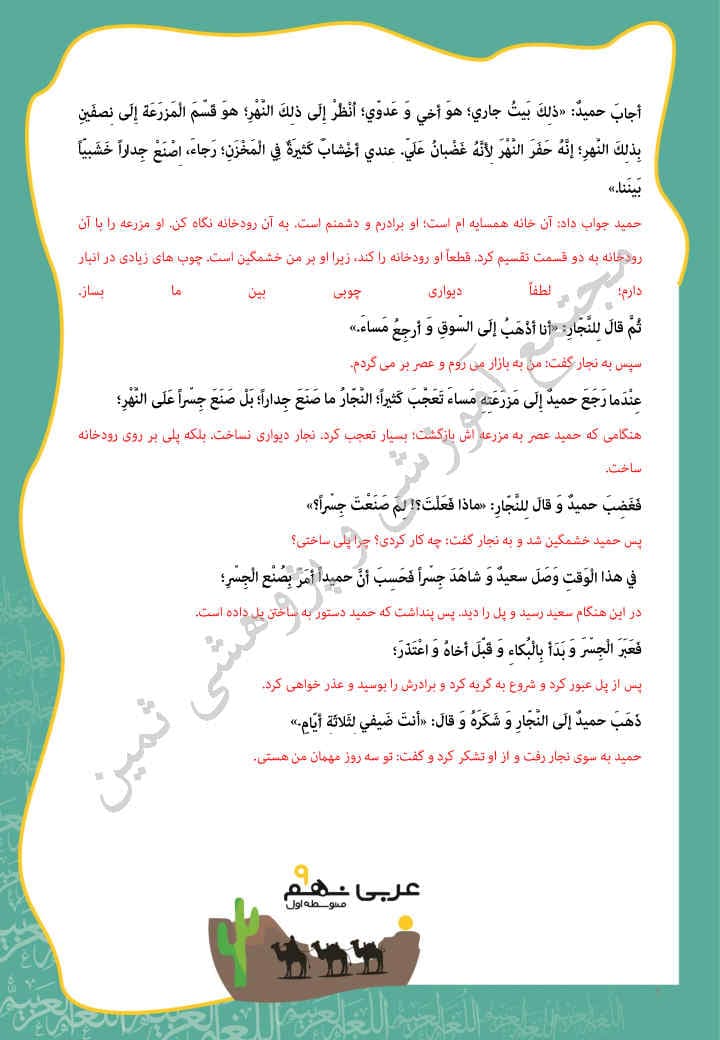 أجابَ حميدٌ: «ذلِكَ بَيتُ جاري؛ هوَ أخي وَ عَدوّي؛ اُنْظُرْ إلَى ذلِكَ النَّهْرِ؛ هوَ قَسَّمَ الْمَزرَعَة إلَى نِصفَينِ
بِذلكَ النَّهرِ؛ إنَّهُ حَفَرَ النَّهْرَ لِأنَّهُ غَضْبانُ عَلَيَّ. عِندي أخْشابٌ كَثيرَةٌ فِي الْمَخْزَنِ؛ رَجاءً، اِصْنَعْ جِداراً خَشَبيّاً
بَينَنا.»
حمید جواب داد: آن خانه همسایه ام است؛ او برادرم و دشمنم است. به آن رودخانه نگاه کن. او مزرعه را با آن
رودخانه به دو قسمت تقسیم کرد. قطعاً او رودخانه را کند، زیرا او بر من خشمگین است. چوب های زیادی در انبار
دارم؛ لطفاً دیواری چوبی بین ما بساز.
ثُمَّ قالَ لِلنَّجّارِ: «أنا أذْهَبُ إلَى السّوقِ وَ أرجِعُ مَساءً.»
سپس به نجار گفت: من به بازار می روم و عصر بر می گردم.
عِنْدَما رَجَعَ حميدٌ إلَى مَزرَعَتِهِ مَساءً تَعَجَّبَ كَثيراً؛ النَّجّارُ ما صَنَعَ جِداراً؛ بَلْ صَنَعَ جِسْراً عَلَى النَّهْرِ؛
هنگامی که حمید عصر به مزرعه اش بازگشت؛ بسیار تعجب کرد. نجار دیواری نساخت. بلکه پلی بر روی رودخانه
ساخت.
فَغَضِبَ حميدٌ وَ قالَ لِلنَّجّارِ: «ماذا فَعَلْتَ؟! لِمَ صَنَعْتَ جِسْراً؟»
پس حمید خشمگین شد و به نجار گفت: چه کار کردی؟ چرا پلی ساختی؟
في هذا الْوَقتِ وَصَلَ سعيدٌ وَ شاهَدَ جِسْراً فَحَسِبَ أنَّ حميداً أمَرَ بِصُنْعِ الْجِسْرِ؛
در این هنگام سعید رسید و پل را دید. پس پنداشت که حمید دستور به ساختن پل داده است.
فَعَبَرَ الْجِسْرَ وَ بَدَأ بِالْبُكاءِ وَ قَبَّلَ أخاهُ وَ اعْتَذَرَ؛
پس از پل عبور کرد و شروع به گریه کرد و برادرش را بوسید و عذر خواهی کرد.
ذَهَبَ حميدٌ إلَى النَّجّارِ وَ شَكَرَهُ وَ قالَ: «أنتَ ضَيفي لِثَلاثَةِ أيّامٍ.»
حمید به سوی نجار رفت و از او تشکر کرد و گفت: تو سه روز مهمان من هستی.
مجتمع آموزشی و پژوهشی ثمین
۹
عربی نهم
متوسطه اول
اللغة العربية